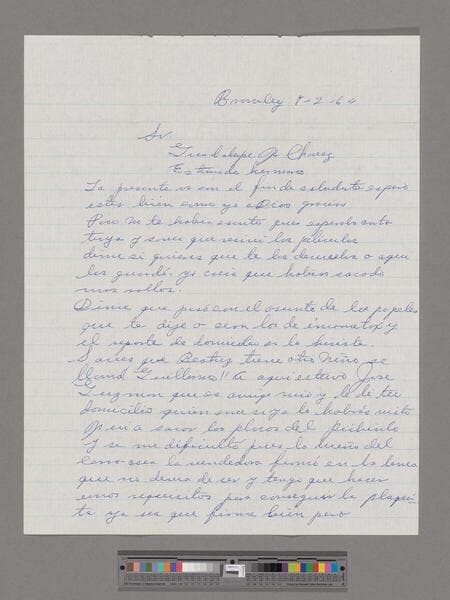 Brawley 9-2-64
Sr.
Guadalupe G. Chavez
Estimado hermano
La presente es con el fin de saludarte espero
estes bien como yo a Dios gracias
Pos no te habia escrito pues esperaba carta
tuya y no sé que reciví las peliculas
dime si quieres que te las devuelva o aqui
las guardo. yo creia que habian sacado
mas rollos.
Dime que pasó con el asunto de los papeles
que te dije o sean los de income tax y
el reporte de domicilio en la
Sabes que Beatriz tiene otro Niño se
llama Guillermo!! Y aqui estuvo Jose
Guzman que es amigo mio y le di tu
domicilio quien sabe si ya le habrás visto
a sacar las placas del
Y se me dificultó pues la dueña del
carro osea la vendedora firmó en la linea
que no devia de ser y tengo que hacer
unos requisitos para conseguir la plaqui-
ta ya sea que firme bien pero